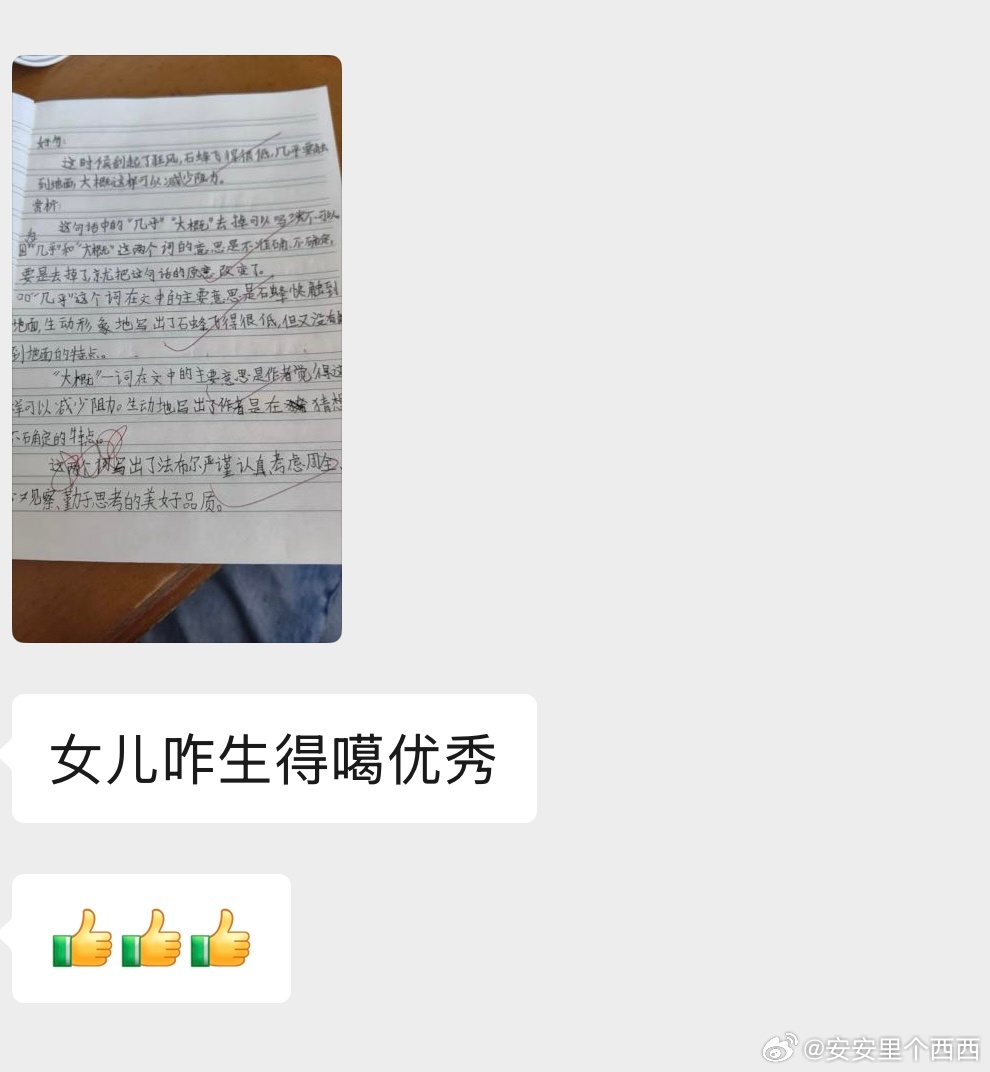 好句:
这时候刮起了狂风,石蜂飞得很低,几乎要触
到地面,大概这样可以减少阻力。
赏析:
这句话中的“几乎”“大概”去掉可以吗?不可以
因为“几乎”和“大概”这两个词的意思是不准确,不确定,
要是去掉了就把这句话的原意改变了。
“几乎”这个词在文中的主要意思是石蜂快触到
地面,生动形象地写出了石蜂飞得很低,但又没有
到地面的特点。
“大概”一词在文中的主要意思是作者觉得这
样可以减少阻力。生动地写出了作者是在猜想
不确定的特点。
这两个词写出了法布尔严谨认真,考虑周全、
观察、勤于思考的美好品质。
女儿咋生得噶优秀
@安安里个西西